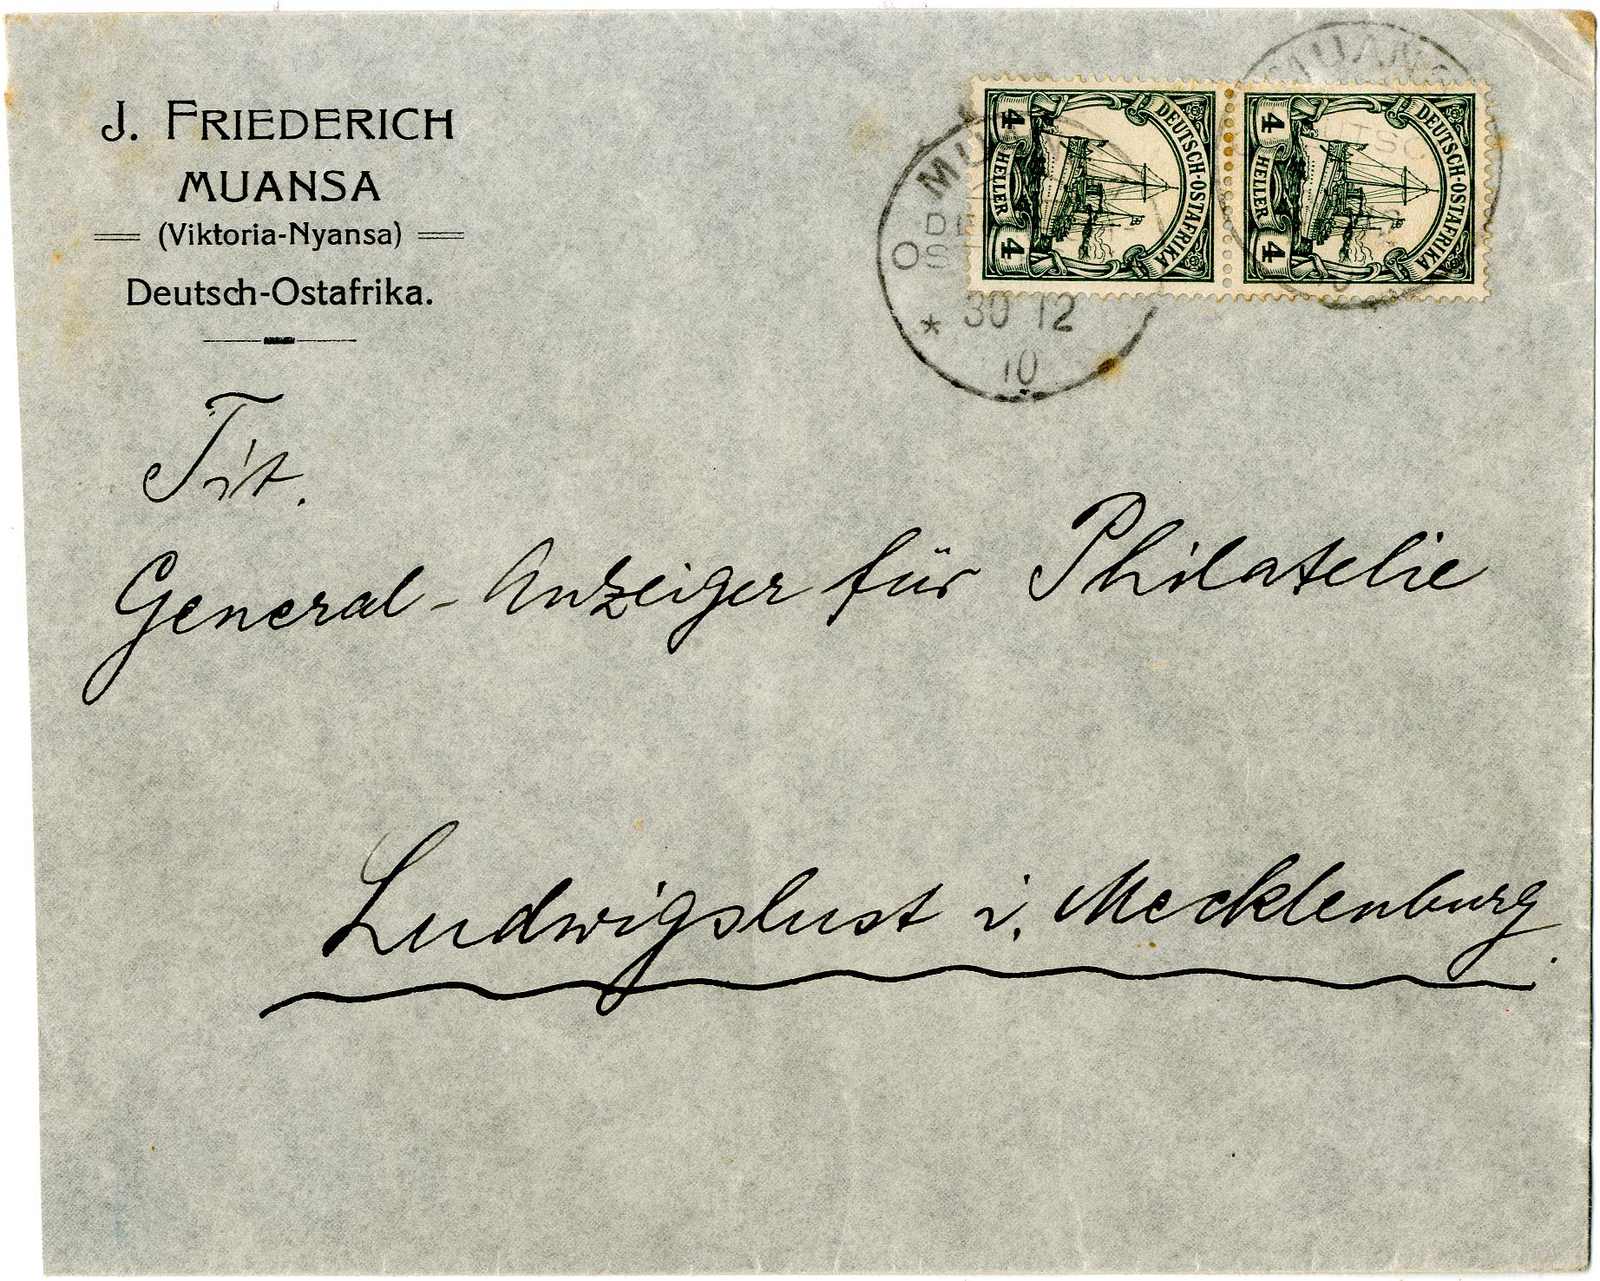 J. FRIEDERICH
MUANSA
(Viktoria-Nyansa)
Deutsch-Ostafrika.
DEUTSCH-OSTAFRIKA
4 HELLER 4
DEUTSCH-OSTAFRIKA
4 HELLER 4
MU
DE
OST
* 30 12
10
MUANS
TSC
Tit.
General-Anzeiger für Philatelie
Ludwigslust i. Mecklenburg.